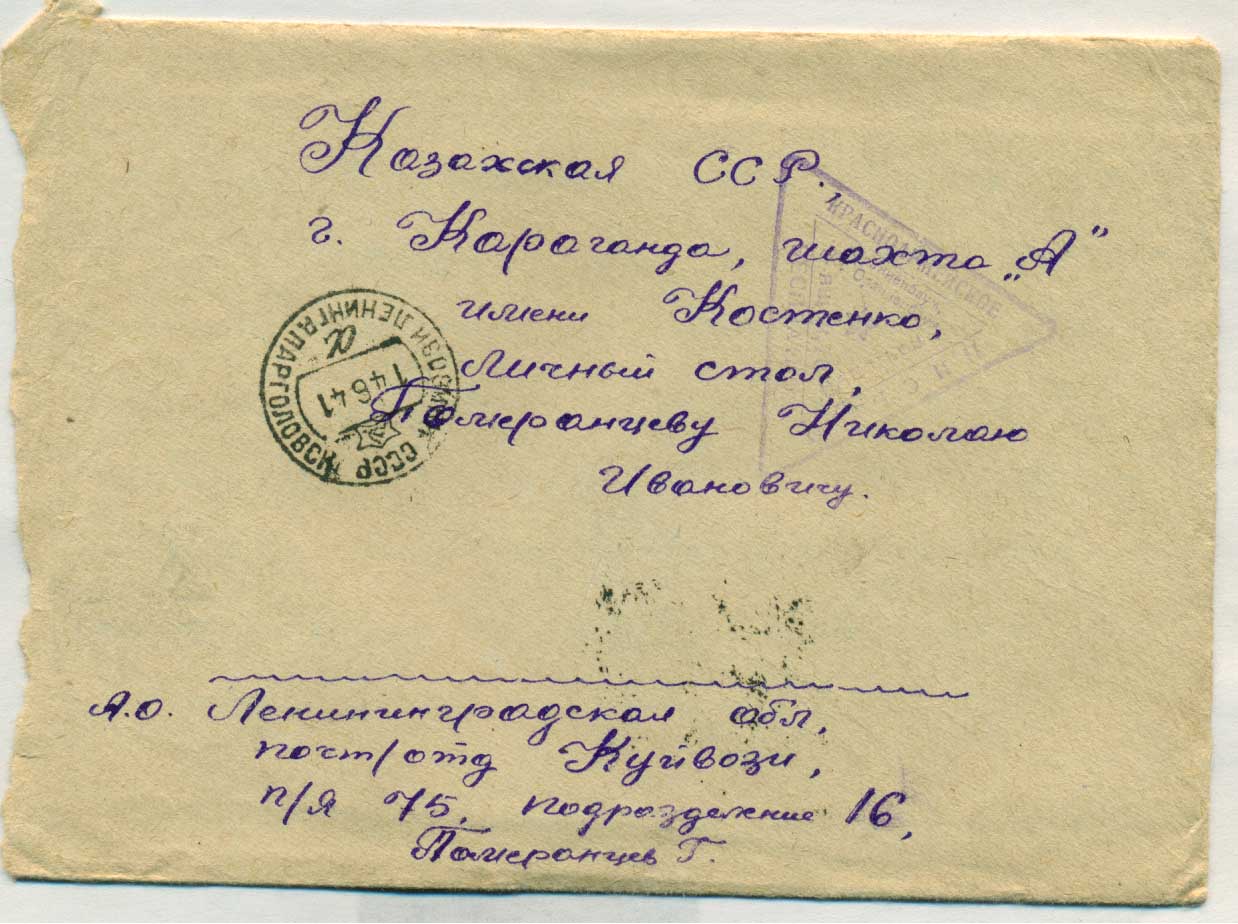 Казахская ССР.,
г. Караганда, шахта „А"
имени Костенко,
Личный стол,
Померанцеву Николаю
Ивановичу.
КРАСНОАРМЕЙСКОЕ
СССР
14 6 41
а
А.О. Ленининградская обл,
почт/отд Куйвози,
п/я 75, подразделение 16,
Памеранцев Г.